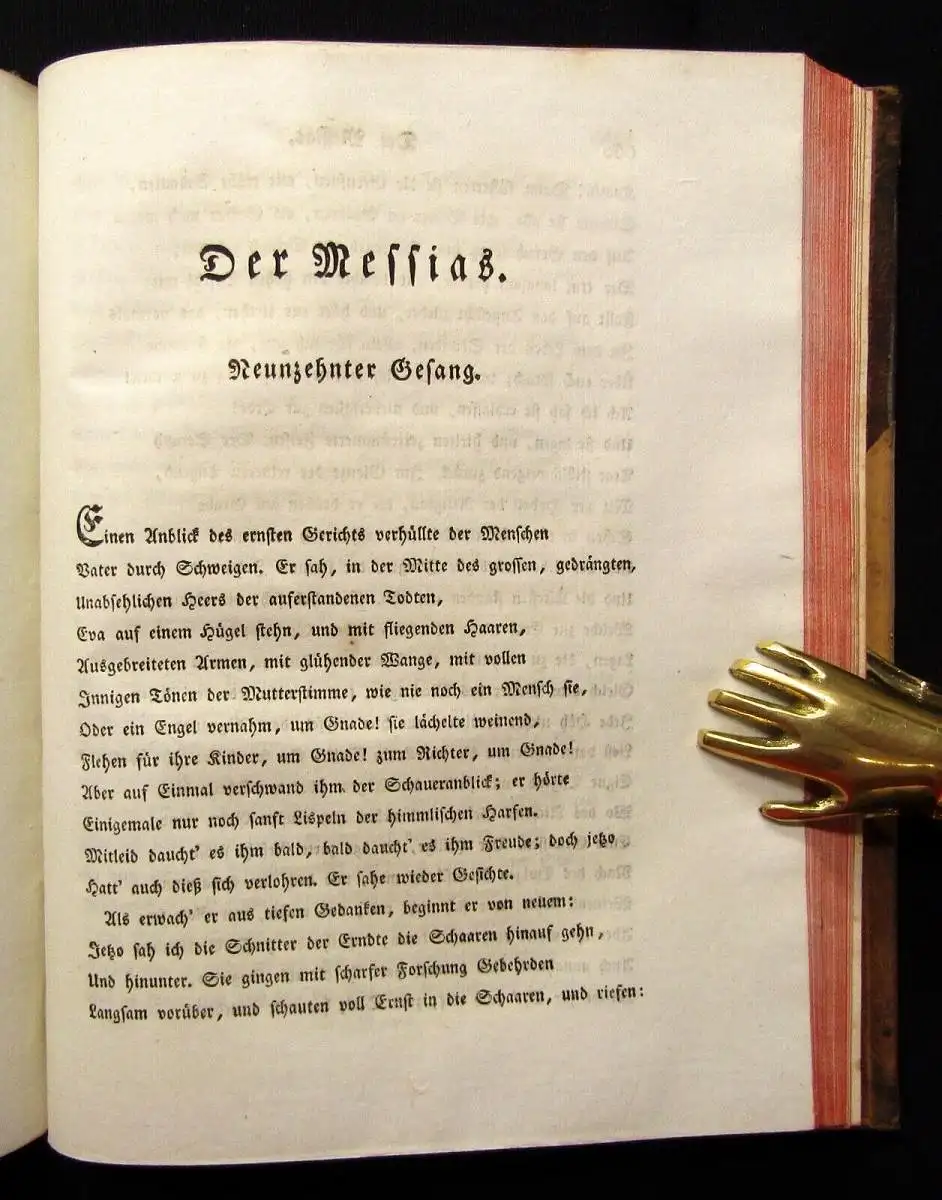 Der Messias.
Neunzehnter Gesang.
Einen Anblick des ernsten Gerichts verhüllte der Menschen
Vater durch Schweigen. Er sah, in der Mitte des grossen, gedrängten,
Unabsehlichen Heers der auferstandenen Todten,
Eva auf einem Hügel stehn, und mit fliegenden Haaren,
Ausgebreiteten Armen, mit glühender Wange, mit vollen
Innigen Tönen der Mutterstimme, wie nie noch ein Mensch sie,
Oder ein Engel vernahm, um Gnade! sie lächelte weinend,
Flehen für ihre Kinder, um Gnade! zum Richter, um Gnade!
Aber auf Einmal verschwand ihm der Schaueranblick; er hörte
Einigemale nur noch sanft Lispeln der himmlischen Harfen.
Mitleid daucht' es ihm bald, bald daucht' es ihm Freude; doch jetzo
Hatt' auch dieß sich verlohren. Er sahe wieder Gesichte.
Als erwach' er aus tiefen Gedanken, beginnt er von neuem:
Jetzo sah ich die Schnitter der Erndte die Schaaren hinauf gehn,
Und hinunter. Sie gingen mit scharfer Forschung Gebehrden
Langsam vorüber, und schauten voll Ernst in die Schaaren, und riefen: